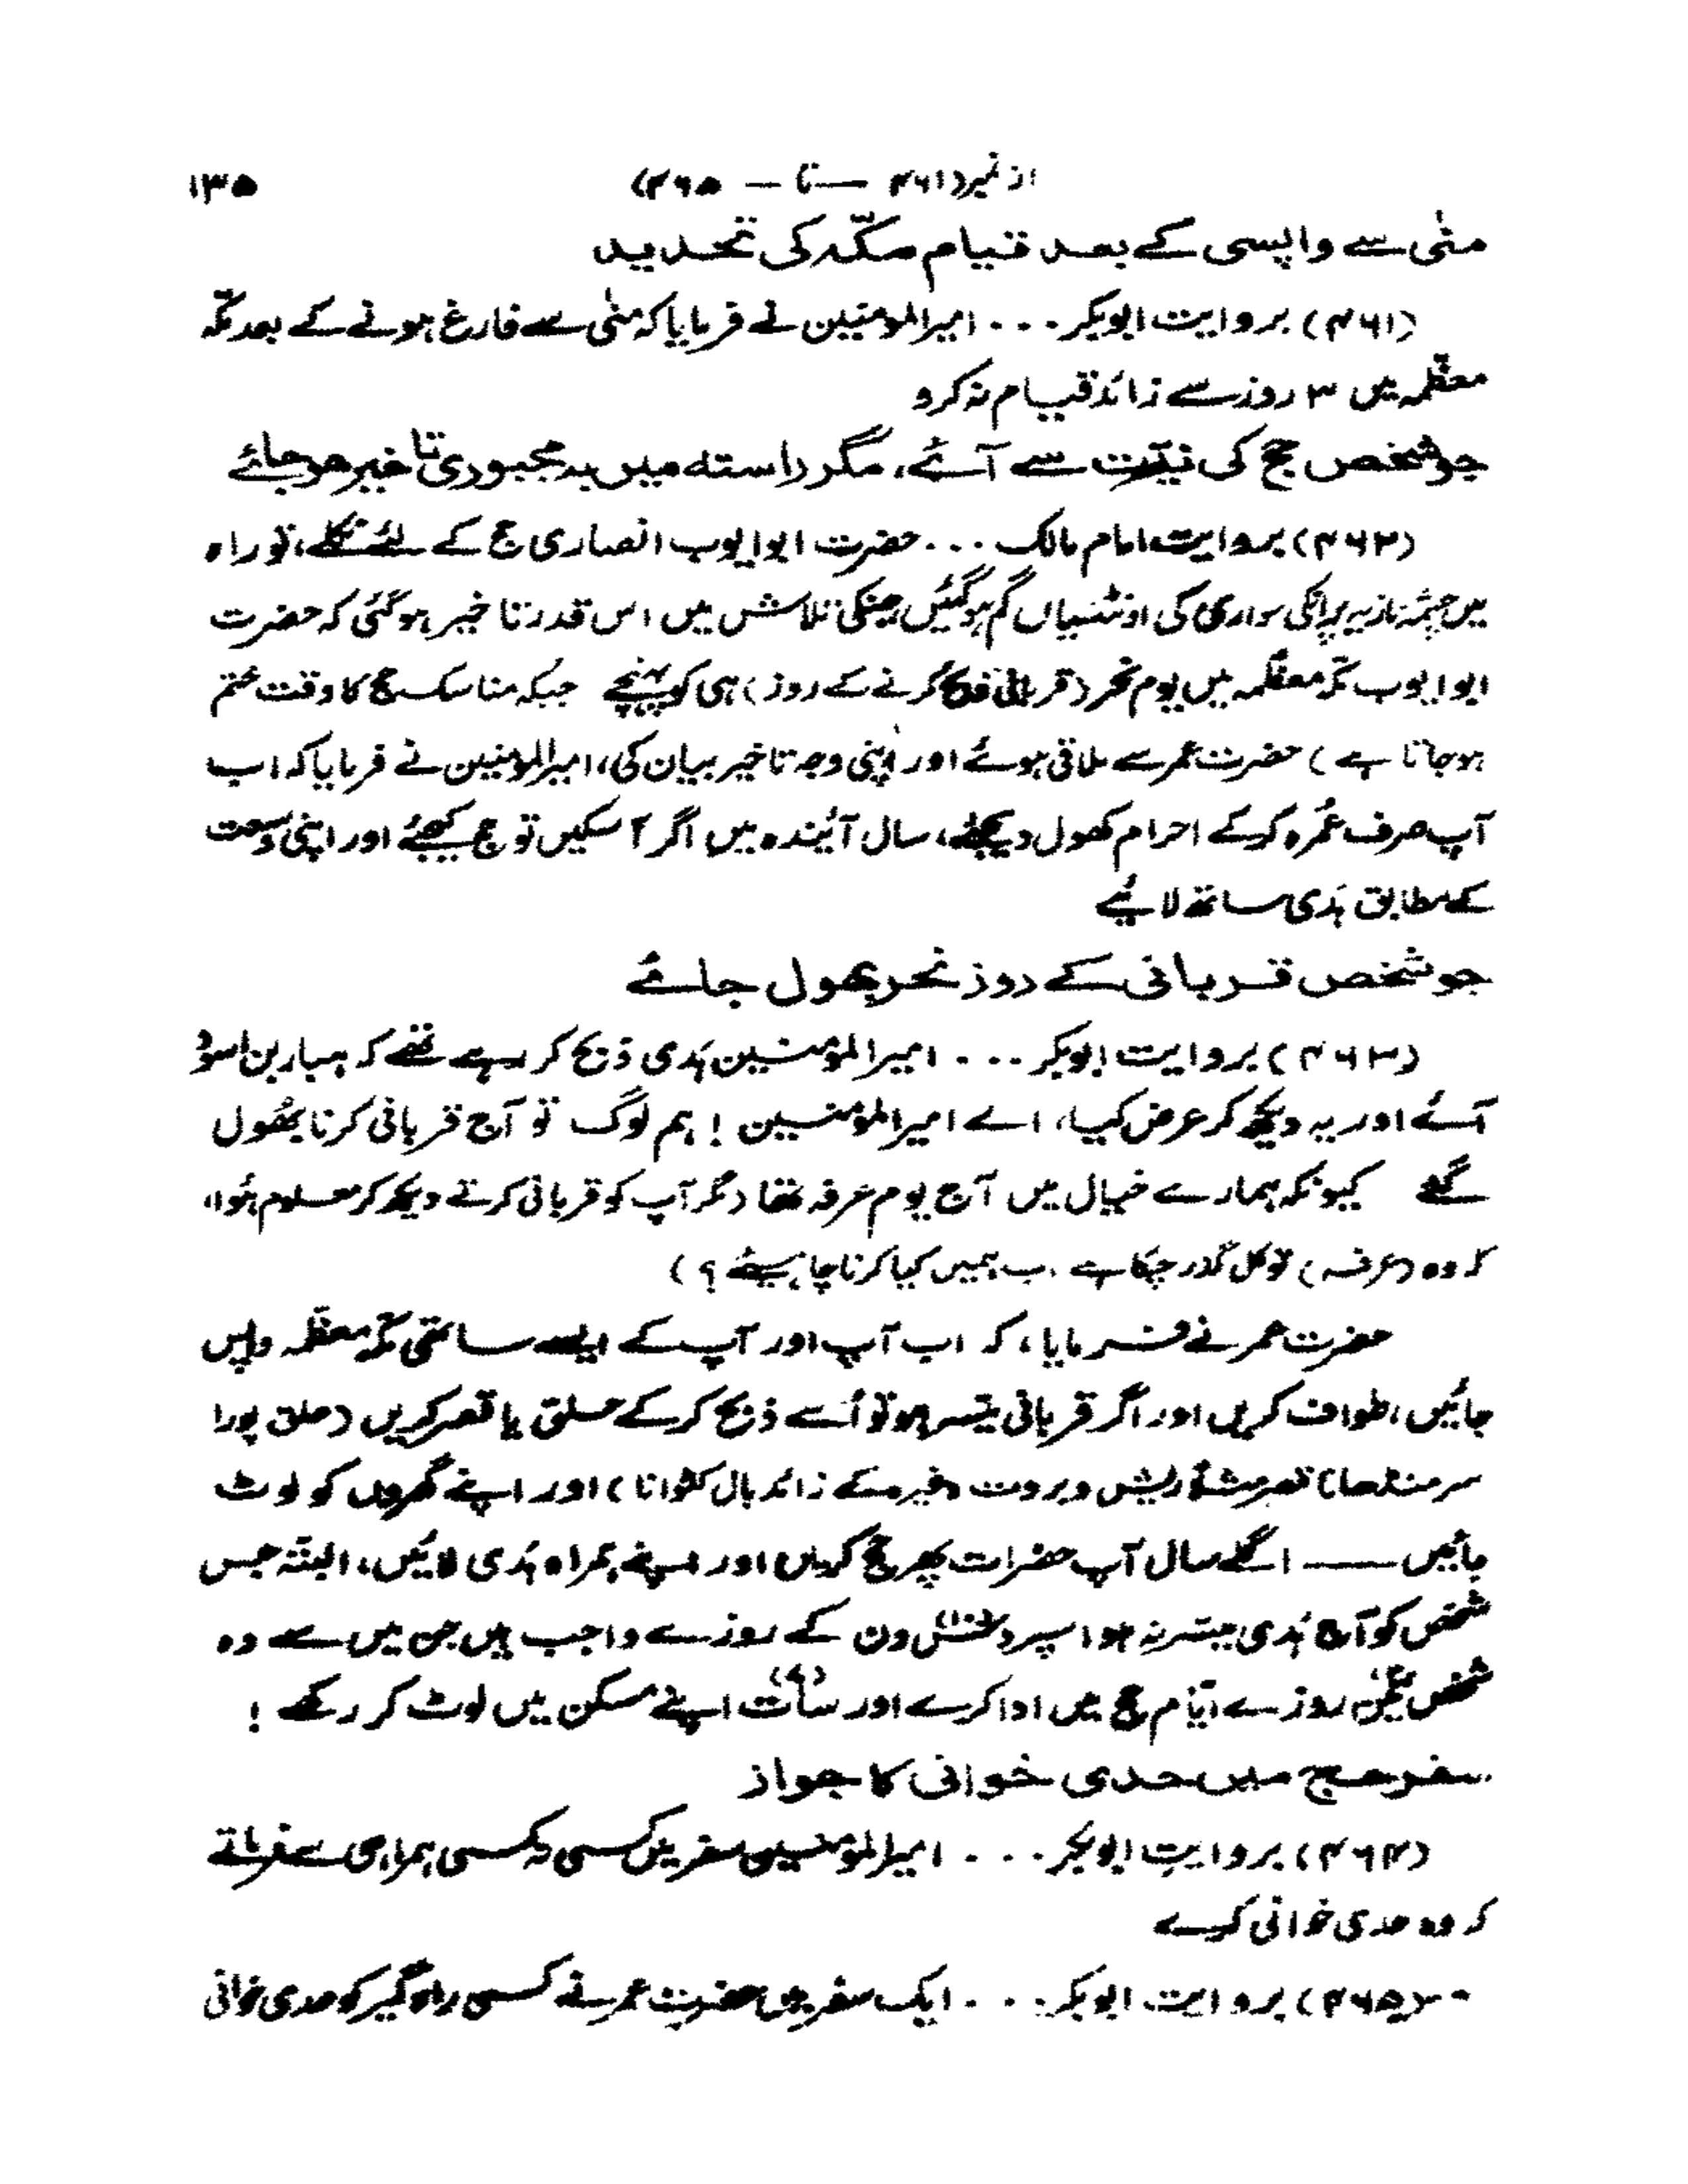 از نمبر (۴۶۱ — تا — ۴۶۵) ۱۳۵
منٰی سے واپسی کے بعد قیام مکّہ کی تحدید
(۴۶۱) بروایت ابوبکر... امیرالمؤمنین نے فرمایا کہ منٰی سے فارغ ہونے کے بعد مکّہ
معظّمہ میں ۳ روز سے زائد قیام نہ کرو
جو شخص حج کی نیّت سے آئے، مگر راستہ میں بہ مجبوری تاخیر ہو جائے
(۴۶۲) بروایت امام مالک... حضرت ابوایوب انصاری حج کے لئے نکلے، تو راہ
میں چشمہ نازیہ پر انکی سواری کی اونٹنیاں گم ہوگئیں جنکی تلاش میں اس قدر تاخیر ہوگئی کہ حضرت
ابوایوب مکّہ معظّمہ میں یوم نحر (قربانی ذبح کرنے کے روز) ہی کو پہنچے جبکہ مناسک حج کا وقت ختم
ہوجاتا ہے) حضرت عمر سے ملاقی ہوئے اور اپنی وجہ تاخیر بیان کی، امیرالمؤمنین نے فرمایا کہ اب
آپ صرف عُمرہ کرکے احرام کھول دیجئے، سال آئیندہ میں اگر آ سکیں تو حج کیجئے اور اپنی وسعت
کے مطابق ہَدی ساتھ لائیے
جو شخص قربانی کے روز نحر بھول جائے
(۴۶۳) بروایت ابوبکر... امیرالمؤمنین ہَدی ذبح کر رہے تھے کہ ہبار بن اسود
آئے اور یہ دیکھ کر عرض کیا، اے امیرالمؤمنین! ہم لوگ تو آج قربانی کرنا بھُول
گئے کیونکہ ہمارے خیال میں آج یوم عرفہ تھا (مگر آپ کو قربانی کرتے دیکھ کر معلوم ہُوا،
کہ وہ (عرفہ) تو کل گذر چکا ہے۔ اب ہمیں کیا کرنا چاہیئے؟)
حضرت عمر نے فرمایا، کہ اب آپ اور آپ کے ایسے ساتھی مکّہ معظّمہ واپس
جائیں، طواف کریں اور اگر قربانی میّسر ہو تو اُسے ذبح کرکے حلق یا قصر کریں (حلق پورا
سر منڈھا) قصر مثلاً ریش و بروت وغیرہ کے زائد بال کٹوانا) اور اپنے گھروں کو لوٹ
جائیں —— اگلے سال آپ حضرات پھر حج کریں اور اپنے ہمراہ ہَدی لائیں، البتّہ جس
شخص کو آج ہَدی میّسر نہ ہو اسپر دس (۱۰) دن کے روزے واجب ہیں جن میں سے وہ
شخص تین (۳) روزے ایّام حج میں ادا کرے اور سات (۷) اپنے مسکن میں لوٹ کر رکھے!
سفر حج میں حدی خوانی کا جواز
(۴۶۴) بروایت ابوبکر... امیرالمؤمنین سفر میں کسی نہ کسی ہمراہی سے فرماتے
کہ وہ حدی خوانی کرے
(۴۶۵) بروایت ابوبکر... ایک سفر میں حضرت عمر نے کسی راہ گیر کو حدی خوانی